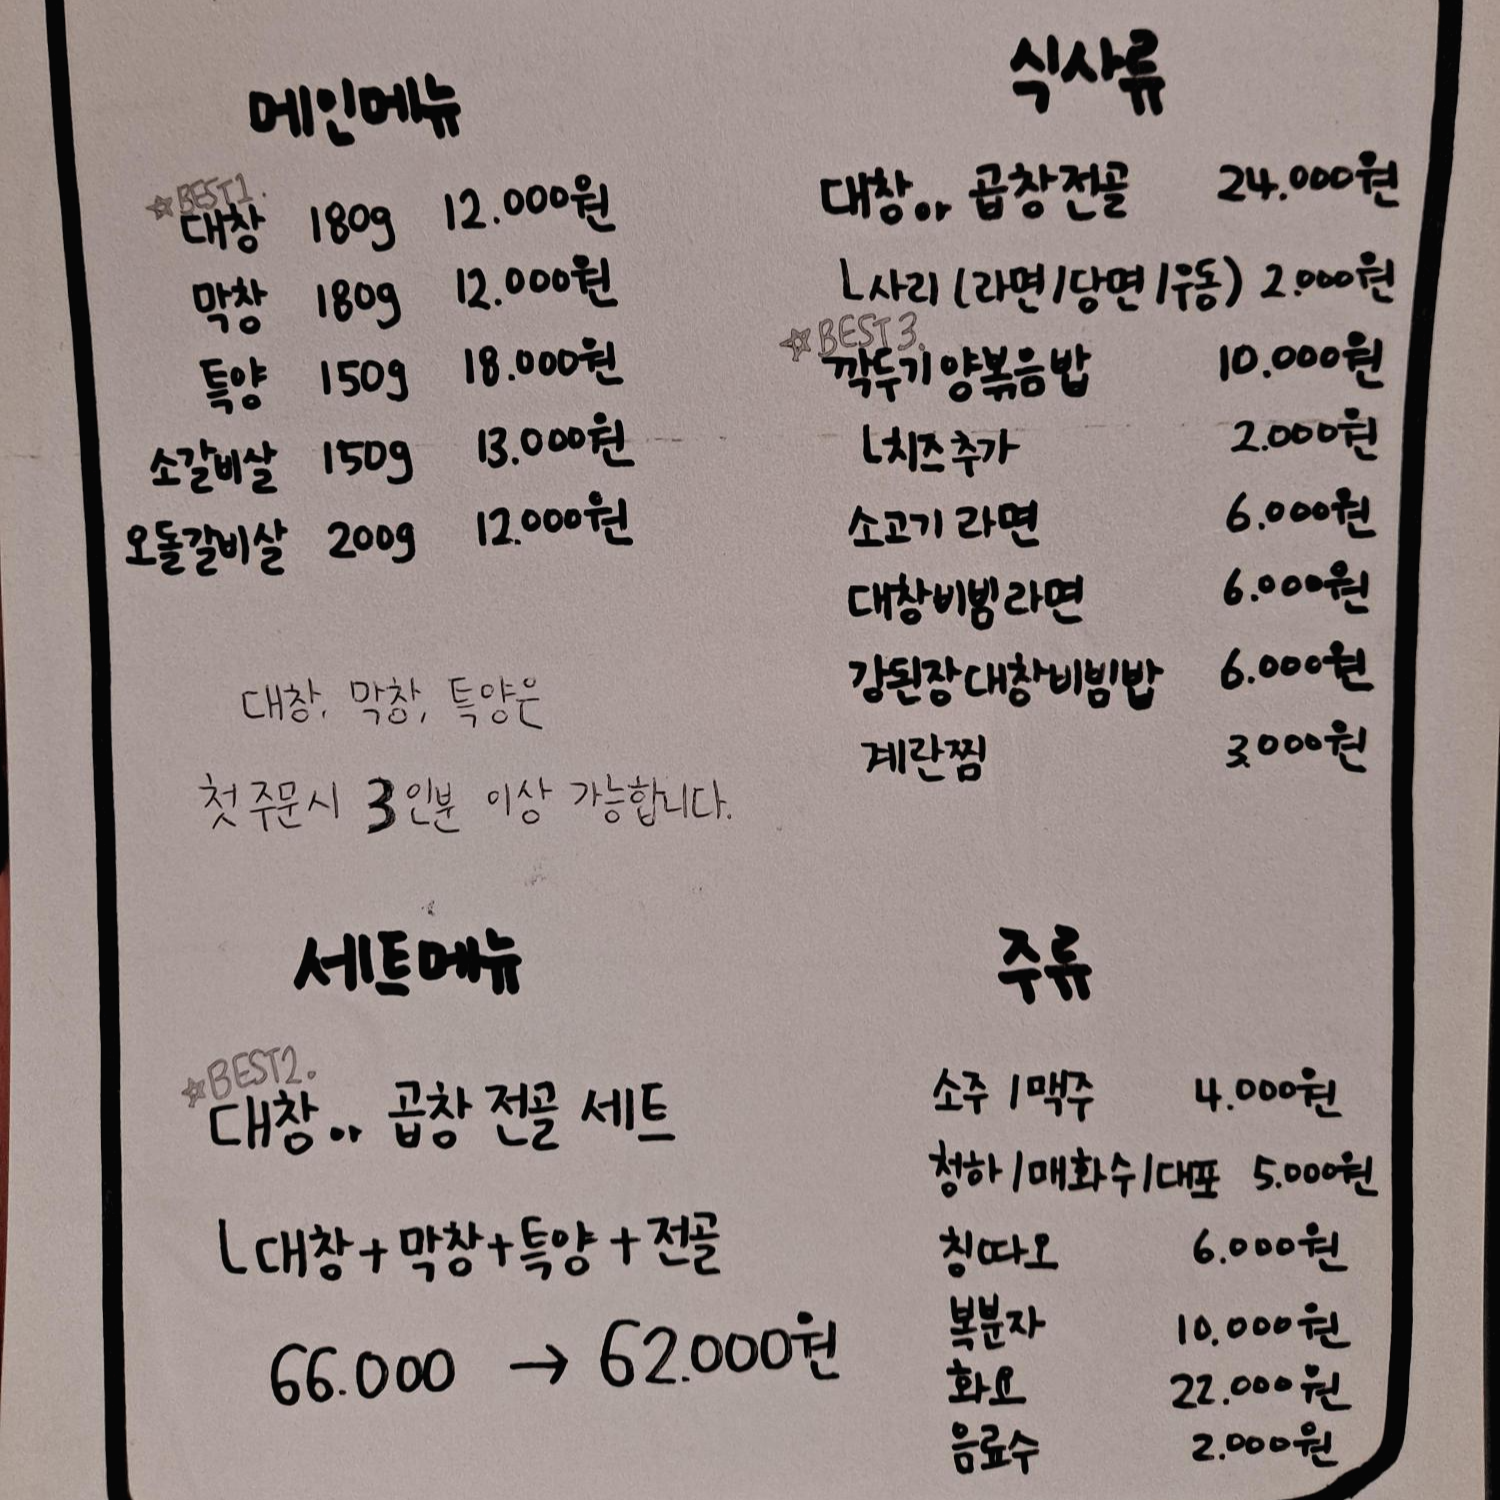 메인메뉴
☆BEST1.
대창 180g 12.000원
막창 180g 12.000원
특양 150g 18.000원
소갈비살 150g 13.000원
오돌갈비살 200g 12.000원
대창, 막창, 특양은
첫 주문시 3인분 이상 가능합니다.
세트메뉴
☆BEST2.
대창.. 곱창 전골 세트
ㄴ대창+막창+특양+전골
66.000 → 62.000원
식사류
대창.. 곱창전골 24.000원
ㄴ사리 (라면/당면/우동) 2.000원
☆BEST3.
깍두기양볶음밥 10.000원
ㄴ치즈추가 2.000원
소고기라면 6.000원
대창비빔라면 6.000원
강된장대창비빔밥 6.000원
계란찜 3,000원
주류
소주/맥주 4.000원
청하/매화수/대포 5.000원
칭따오 6.000원
복분자 10.000원
화요 22.000원
음료수 2.000원